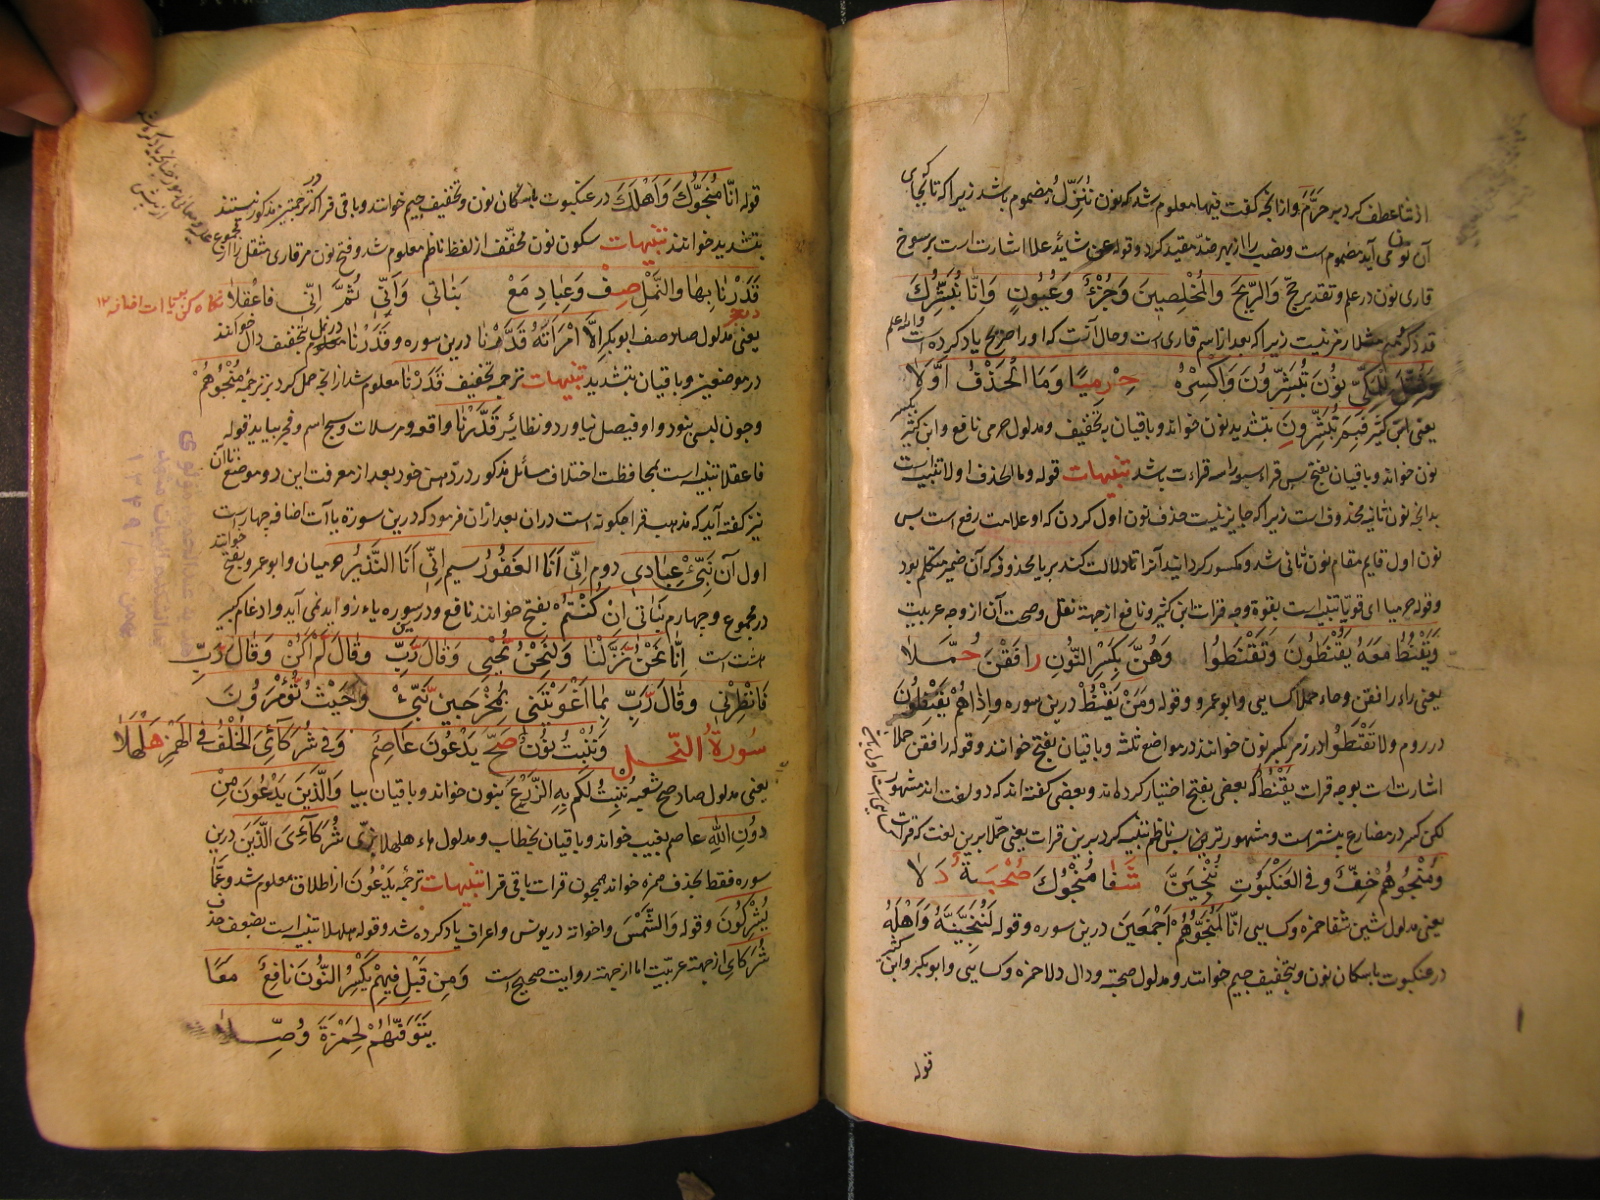 از شاعطف کرد بر حرّم و از انجه کفت فیها معلوم شد که نون نُنَزِّلُ مضموم باشد زیرا که تا که بجای
آن نون می آید مضموم است
قاری نون در علم و تقدیر حِجّ وَالرِّیحَ وَالمُخْلِصِینَ وَجُزْءٌ وَعُیُونٍ وَاِنَّا نُبَشِّرُكَ
زیرا که بعد از اسم قاری است و حال آنست که او را صریح یاد کرده است
وَثُقِّلَ لِلمَکِّیِّ نُونُ تُبَشِّرُونَ وَاکْسِرْهُ حِرْمِیًّا وَمَا الْحَذْفُ اَوَّلَا
یعنی ابن کثیر فَبِمَ تُبَشِّرُونَ بتشدید نون خواند و باقیان بتخفیف و مدلول حرمی نافع و ابن کثیر بکسر
نون خواند و باقیان بفتح پس قراءت باشد تنبیهات قوله و ما الحذف اولا تنبیه است
بدانجه نون ثانیه محذوف است زیرا که جایز نیست حذف نون اول کردن که او علامت رفع است پس
نون اول قایم مقام نون ثانی شد و مکسور کردانیدند آنرا تا دلالت کند بر یا محذوفه که آن ضمیر متکلم بود
و قوله حرمیا ای قویّا تنبیه است بقوة وجه قرات ابن کثیر و نافع از جهة نقل و صحت آن از وجه عربیت
وَیَقْنَطُ مَعَهُ یَقْنَطُونَ وَتَقْنَطُوا وَهُنَّ بِکَسْرِ النُّونِ رافَقْنَ حُمَّلَا
یعنی راء رافقن و حاء حملا کسایی و ابو عمرو و قوله وَمَنْ یَقْنَطُ درین سوره و اِذَا هُمْ یَقْنَطُونَ
در روم و لا تَقْنَطُوا در زمر بکسر نون خوانند در مواضع ثلثه و باقیان بفتح خوانند و قوله رافقن حملا
اشارت است بوجه قرات یَقْنَطُ که بعضی بفتح اختیار کرده اند و بعضی کفته اند که دو لغت اند مشهور
لکن کسر در مضارع بیشتر است و مشهورتر پس ناظم تنبیه کرد برین قرات یعنی حملا برین لغت که قرات
وَمُنْجُوهُمْ خِفٌّ وَفِی العَنْکَبُوتِ نُنْجِیَنَّ شَفَا مُنْجُوكَ صُحْبَةٌ دَلَا
یعنی مدلول شین شفا حمزه و کسایی اِنَّا لَمُنَجُّوهُمْ اَجْمَعِینَ درین سوره و قوله لَنُنَجِّیَنَّهُ وَاَهْلَهُ
در عنکبوت باسکان نون و بتخفیف جیم خوانند و مدلول صحبة و دال دلا حمزه و کسایی و ابوبکر و ابن کثیر
قوله
قوله اِنَّا مُنَجُّوكَ وَاَهْلَكَ در عنکبوت باسکان نون و تخفیف جیم خوانند و باقی قرا که در ترجمتین مذکور نیستند
بتشدید خوانند تنبیهات سکون نون مخفّف از لفظ ناظم معلوم شد و فتح نون مر قاری مثقل را
قَدَرْنَا بِهَا وَالنَّمْلِ صِفْ وَعِبَادِ مَعْ بَنَاتِی وَاَنِّی ثُمَّ اِنِّی فَاعْقِلَا
یعنی مدلول صاد صف ابوبکر اِلَّا امْرَاَتَهُ قَدَّرْنَا درین سوره و قَدَرْنَاهَا در نمل بتخفیف دال خواند
در موضعین و باقیان بتشدید تنبیهات ترجمه تخفیف قَدَرْنَا معلوم شد از انجه حمل کرد بر ترجمه مُنْجُوهُمْ
و جون لبسی نبود واو فیصل نیاورد و نظایر قَدَّرْنَا واقعه و مرسلات و سبح اسم و فجر بیاید قوله
فاعقلا تنبیه است بمحافظت اختلاف مسایل مذکور در ذهن خود بعد از معرفت این دو موضع
نیز کفته آید که مذهب قرا جکونه است دران بعد ازان فرمود که درین سوره یاآت اضافه جهار است
اول آن نَبِّیءْ عِبَادِی دوم اِنِّی اَنَا الغَفُورُ سیم اِنِّی اَنَا النَّذِیرُ حرمیان و ابو عمرو بفتح خوانند
در مجموع و جهارم بَنَاتِی اِنْ کُنْتُمْ بفتح خواند نافع و درین سوره یاء زواید نمی آید و ادغام کبیر
هشت است اِنَّا نَحْنُ نَزَّلْنَا وَلَنَحْنُ نُحْیِی وَقَالَ رَبِّ وَقَالَ لَمْ اَکُنْ وَقَالَ رَبِّ
فَانْظِرْنِی وَقَالَ رَبِّ بِمَا اَغْوَیْتَنِی بِمُخْرَجِینَ نَبِّیءْ وَحَیْثُ تُؤْمَرُونَ
سُورَةُ النَّحْلِ وَنُنْبِتُ نُونٌ صَحَّ یَدْعُونَ عَاصِمٌ وَفِی شُرَکَآئِیَ الخُلْفُ فِی الهَمْزِ هَلْهَلَا
یعنی مدلول صاد صح شعبه نُنْبِتُ لَکُمْ بِهِ الزَّرْعَ بنون خواند و باقیان بیا وَالَّذِینَ یَدْعُونَ مِنْ
دُونِ اللّٰهِ عاصم بغیب خواند و باقیان بخطاب و مدلول هاء هلهلا بزی شُرَکَآئِیَ الَّذِینَ درین
سوره فقط بحذف همزه خواند همجون قرات باقی قرا تنبیهات ترجمه یَدْعُونَ از اطلاق معلوم شد و عَمَّا
یُشْرِکُونَ و قوله وَالشَّمْسَ و اخواته در یونس و اعراف یاد کرده شد و قوله هلهلا تنبیه است بضعف حذف
شُرَکَایَ از جهة عربیّت اما از جهة روایت صحیح است وَمِنْ قَبْلِ فِیهِمْ یَکْسِرُ النُّونَ نَافِعٌ مَعًا
یَتَوَفَّاهُمْ لِحَمْزَةَ وُصِّلَا